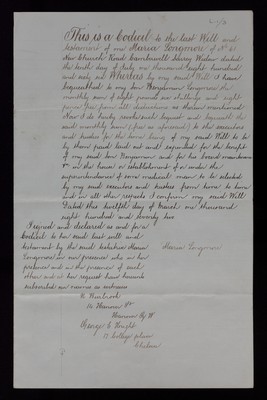 This is a Codicil to the last Will and
testament of me Maria Longmore of No 61
New Church Road Camberwell Surrey Widow dated
the tenth day of July one thousand eight hundred
and sixty six Whereas by my said Will I have
bequeathed to my son Benjamin Longmore the
monthly sum of eight pounds six shillings and eight
pence free from all deductions as therein mentioned
Now I do hereby revoke such bequest and bequeath the
said monthly sum (free as aforesaid) to the executors
and trustees for the time being of my said Will to be
by them paid laid out and expended for the benefit
of my said son Benjamin and for his board maintenance
in the house or establishment of or under the
superintendence of some medical man to be selected
by my said executors and trustees from time to time
and in all other respects I confirm my said Will
Dated this twelfth day of March one thousand
eight hundred and seventy two
Signed and declared as and for a
Codicil to her said last will and
testament by the said testatrix Maria Maria Longmore
Longmore in our presence who in her
presence and in the presence of each
other and at her request have hereunto
subscribed our names as witnesses
16 Hanover St
Hanover Sq W
George C Wright
Chelsea